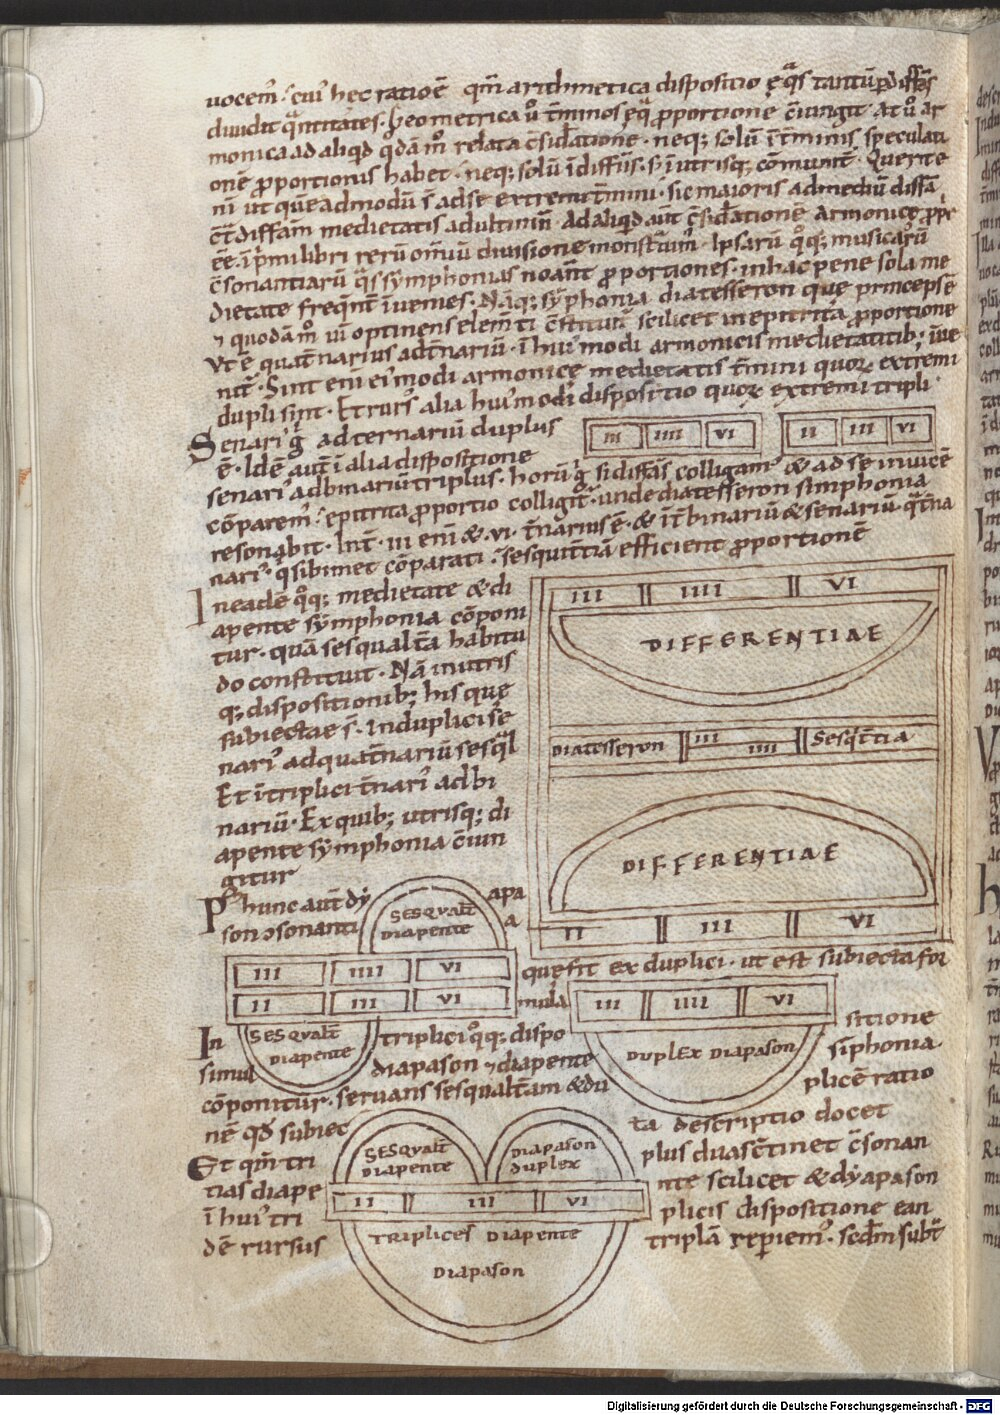 uocem̄. cui' hec ratio ē qm̄ arithmetica dispositio ęq̄s tantū p̄ diff̄as
diuidit q̄ntitates. Geometrica u͛ t̄minos ęq̄ p̄portione c̄iungit at u͛ ar
monica ad aliqd qdā m̊ relata c̄sid̄atione. neq; solū ī t̄minis speculati
onē p̄portionis habet. neq; solū ī diff̄iis. s; ī utrisq; cōmunit̄. Querit ē
nī ut quēadmodū s̄ ad se extremi t̄mini. sic maioris ad mediū diff̄a
c̄t̄ diff̄am medietatis ad ultimū.
ēē. ī p̄mi libri rerū om̄iū diuisione monst̄uim̄. Ipsarū q̊q; musicarū
c̄sonantiarū q̄s symphonias noān̄t p̄portiones. in hac pene sola me
dietate freq̄nt̄ īuenies. Nāq; sȳphonia diatesseron que princeps ē
⁊ quodā m̊ uī optinens elem̄ti c̄stituit̄ scilicet in epitrita p̄portione
Vt ē quat̄narius ad t̄nariū. ī hui'modi armonicis medietatib; īue
nit̄. Sint enī ei'modi armonicę medietatis t̄mini quoꝝ extremi
dupli sint. Et rurs' alia hui'modi dispositio quoꝝ extremi tripli.
Senari' g̊ ad ternariū duplus
III IIII VI II III VI
ē. Idē aut̄ ī alia dispositione
senari' ad binariū triplus. horū g̊ si diff̄as colligam' & ad se inuicē
cōparem'. epitrita p̄portio colligit̄. unde diatesseron simphonia
resonabit. Int̄. III enī &. VI. t̄narius ē. & īt̄ binariū & senariū. q̄t̄na
nari'. q̄ sibimet cōparati. sesquit̄tiā efficient p̄portionē
In eadē q̊q; medietate & di
apente symphonia cōponi
tur. quā sesqualt̄a habitu
do constituit. Nā in utris
q; dispositionib; his quę
subiectae s̄. In duplici se
nari' ad quat̄nariū sesq̄l
Et ī triplici t̄nari' ad bi
nariū. Ex quib; utrisq; di
apente sȳmphonia c̄iun
gitur
III IIII VI
DIFFERENTIAE
DIATESSERON III IIII SESQ'T̄TIA
DIFFERENTIAE
II III VI
P' hunc aut̄ dy apa
son ɔsonanti a
SESQVALT̄ DIAPENTE
III IIII VI
II III VI
SESQVALT̄ DIAPENTE
que fit ex duplici. ut est subiecta for
mula
III IIII VI
DUPLEX DIAPASON
In triplici q̊q; dispo sitione
simul diapason ⁊ diapente siphonia.
cōponitur. seruans sesqualt̄am & du plicē ratio
nē qd̄ subiec ta descriptio docet
Et qm̄ tri plus duas c̄tinet c̄sonan
tias diape nte scilicet & dyapason
ī hui' tri plicis dispositione ean
dē rursus triplā repiem'. scdm̄ subt̄
SESQVALT̄ DIAPENTE
DIAPASON DUPLEX
II III VI
TRIPLICES DIAPENTE
DIAPASON
Digitalisierung gefördert durch die Deutsche Forschungsgemeinschaft - DFG